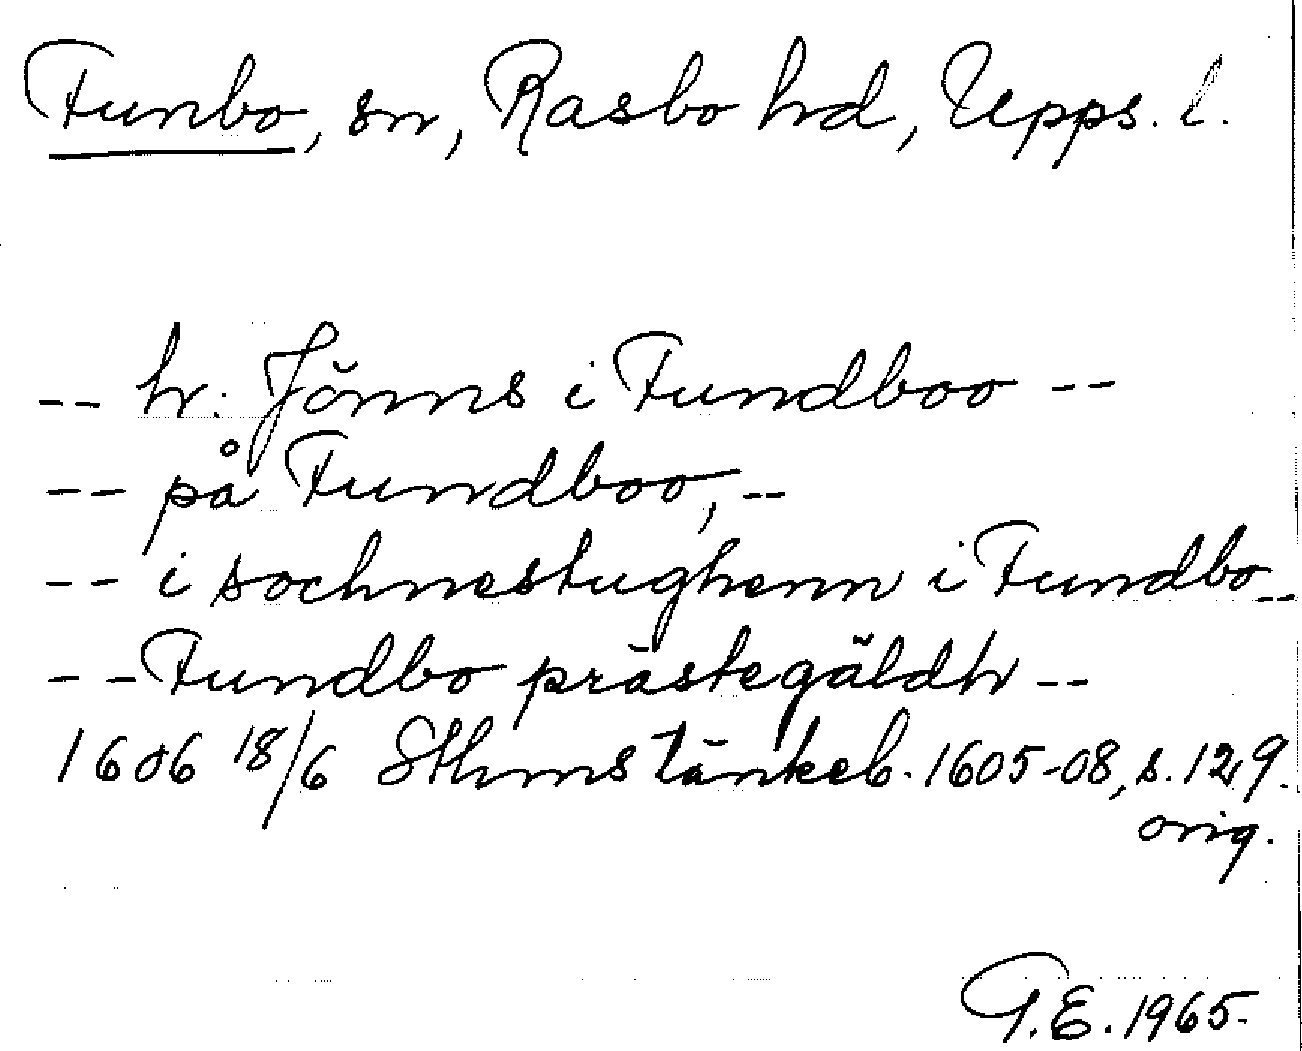 Funbo, sn, Rasbo hd, Upps. l.
-- hr. Jönns i Fundboo --
-- på Fundboo, --
-- i sochnestughenn i Fundbo --
-- Fundbo prästegäldh --
1606 18/6 Sthms tänkeb. 1605-08, s. 129.
orig.
G.E. 1965.